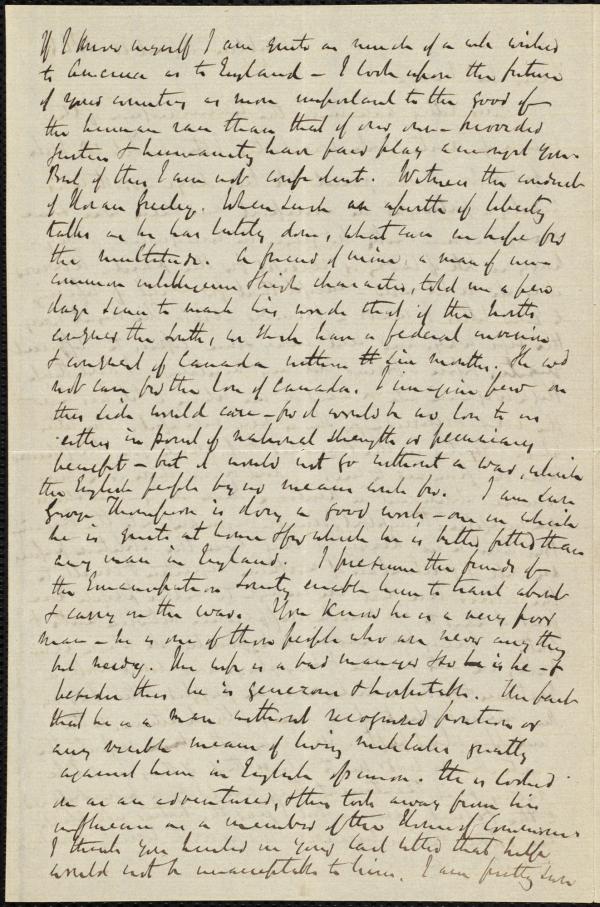 If I know myself I am quite as much of a well wisher
to America as to England - I look upon the future
of your country as more important to the good of
the human race than that of our own - provided
justice & humanity have fair play amongst you.
But of this I am not confident. Witness the conduct
of Horace Greeley. When such an apostle of liberty
talks as he has lately done, what can we hope for
the multitude. A friend of mine, a man of un-
common intelligence & high character, told me a few
days since to mark his words that if the North
conquers the South, we shall have a federal invasion
& conquest of Canada within six months. He wd
not care for the loss of Canada. I imagine few on
this side would care - for it would be no loss to us
either in point of national strength or pecuniary
benefit - but it would not go without a war, which
the English people by no means wish for. I am sure
George Thompson is doing a good work - one in which
he is quite at home & for which he is better fitted than
any man in England. I presume the funds of
the Emancipation Society enable him to travel about
& carry on the war. You know he is a very poor
man - he is one of those people who are never anything
but needy. His wife is a bad manager & so is he -
besides this he is generous & hospitable. The fact
that he is a man without recognised position or
any visible means of living militates greatly
against him in English opinion. He is looked
on as an adventurer, & this took away from his
influence as a member of the House of Commons
I think you hinted in your last letter that help
would not be unacceptable to him. I am pretty sure